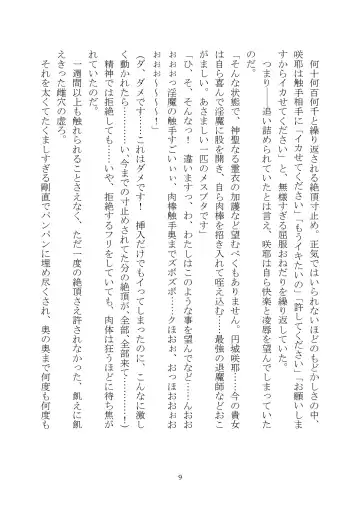 何十何百何千と繰り返される絶頂寸止め。正気ではいられないほどのもどかしさの中、
咲耶は触手相手に「イカせてください」「もうイキたいの」「許してください」「お願いしま
すからイカせてください」と、無様すぎる屈服おねだりを繰り返していた。
つまり――追い詰められていたとは言え、咲耶は自ら快楽と凌辱を望んでしまっていた
のだ。
「そんな状態で、神聖なる霊衣の加護など望むべくもありません。円城咲耶……今の貴女
は自ら喜んで淫魔に股を開き、自ら肉棒を招き入れて咥え込む……最強の退魔師などおこ
がましい。あさましい一匹のメスブタです」
「ひ、そ、そんなっ！　違いますっ、わ、わたしはこのような事を望んでなど……んおお
おぉぉっ淫魔の触手すごいぃぃ、肉棒触手奥までズボズボ……クほおぉ、おっほおおぉお
おぉぉ～～～～！」
（ダ、ダメです……これはダメです！　挿入だけでもイってしまったのに、こんなに激し
く動かれたら……い、今までの寸止めされてた分の絶頂が、全部、全部来て――！）
精神では拒絶しても……いや、拒絶するフリをしていても、肉体は狂うほどに待ち焦が
れていたのだ。
一週間以上も触れられることさえなく、ただ一度の絶頂さえ許されなかった、飢えに飢
えきった雌穴の虚ろ。
それを太くてたくましすぎる剛直でパンパンに埋め尽くされ、奥の奥まで何度も何度も
9